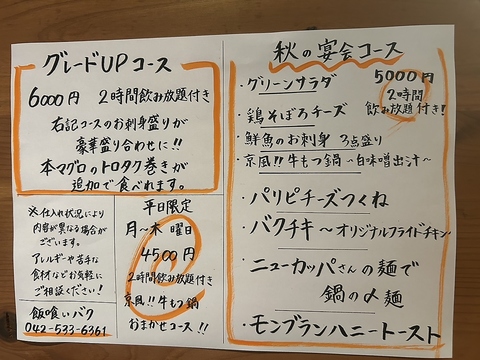 グレードUPコース
6000円 2時間飲み放題付き
右記コースのお刺身盛りが
豪華盛り合わせに!!
本マグロのトロタク巻きが
追加で食べれます。
※仕入れ状況により
内容が異なる場合が
ございます。
アレルギーや苦手な
食材などお気軽に
ご相談ください!
飯喰いバク
042-533-6361
平日限定
月〜木曜日
4500円
2時間飲み放題付き
京風!!牛もつ鍋
おまかせコース!!
秋の宴会コース
5000円
2時間
飲み放題付き!
・グリーンサラダ
・鶏そぼろチーズ
・鮮魚のお刺身 3点盛り
・京風!!牛もつ鍋 〜白味噌出汁〜
・パリピチーズつくね
・バクチキ〜オリジナルフライドチキン〜
・ニューカッパさんの麺で
鍋の〆麺
・モンブランハニートースト